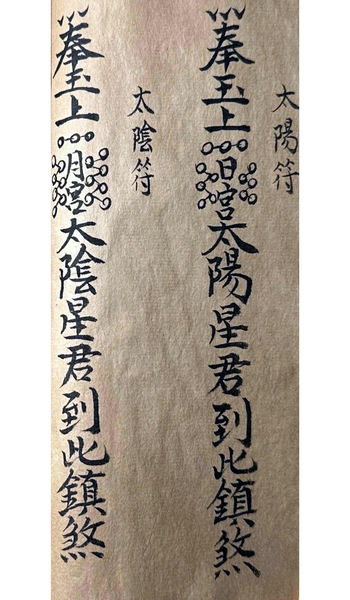 太陽符
奉玉上日宮太陽星君到此鎮煞
太陰符
奉玉上月宮太陰星君到此鎮煞